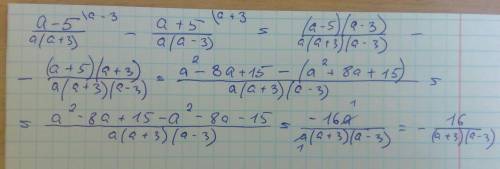 a-5\a-3 / a(a+3) - a+5\a+3 / a(a-3) = (a-5)(a-3) / a(a+3)(a-3) -
- (a+5)(a+3) / a(a+3)(a-3) = a²-8a+15-(a²+8a+15) / a(a+3)(a-3) =
= a²-8a+15-a²-8a-15 / a(a+3)(a-3) = -16a 1 / a 1 (a+3)(a-3) = - 16 / (a+3)(a-3)